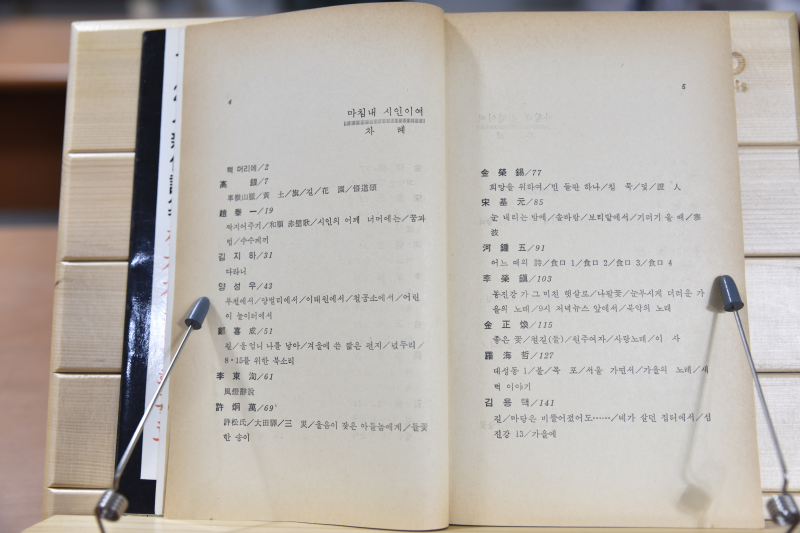 4
마침내 시인이여
차 례
책 머리에/2
高 銀/7
華嶽山脈/黃 土/旗/길/花 園/修道頌
趙 泰 一/19
짝지어주기/和順 赤壁歌/시인의 어깨 너머에는/꿈과
법/수수께끼
김 지 하/31
다라니
양 성 우/43
부천에서/양벌리에서/이태원에서/철공소에서/어린
이 놀이터에서
鄭 喜 成/51
넋/울엄니 나를 낳아/겨울에 쓴 짧은 편지/넋두리/
8·15를 위한 북소리
李 東 洵/61
風燈辭說
許 炯 萬/69
許松氏/大田驛/三 災/울음이 잦은 아들놈에게/들꽃
한 송이
5
金 榮 錫/77
희망을 위하여/빈 들판 하나/침 묵/빛/證 人
宋 基 元/85
눈 내리는 밤에/솔바람/보리밭에서/기러기 울 때/寒
波
河 鍾 五/91
어느 때의 詩/食口 1/食口 2/食口 3/食口 4
李 榮 鎭/103
동진강 가 그 미친 햇살로/나팔꽃/눈부시게 더러운 가
을의 노래/9시 저녁뉴스 앞에서/북악의 노래
金 正 煥/115
좋은 꽃/원길(들)/원주여자/사랑노래/이 사
羅 海 哲/127
대성동 1/불/목 포/서울 가면서/가을의 노래/새
벽 이야기
김 용 택/141
길/마당은 비뚤어졌어도……/네가 살던 집터에서/섬
진강 13/가을에